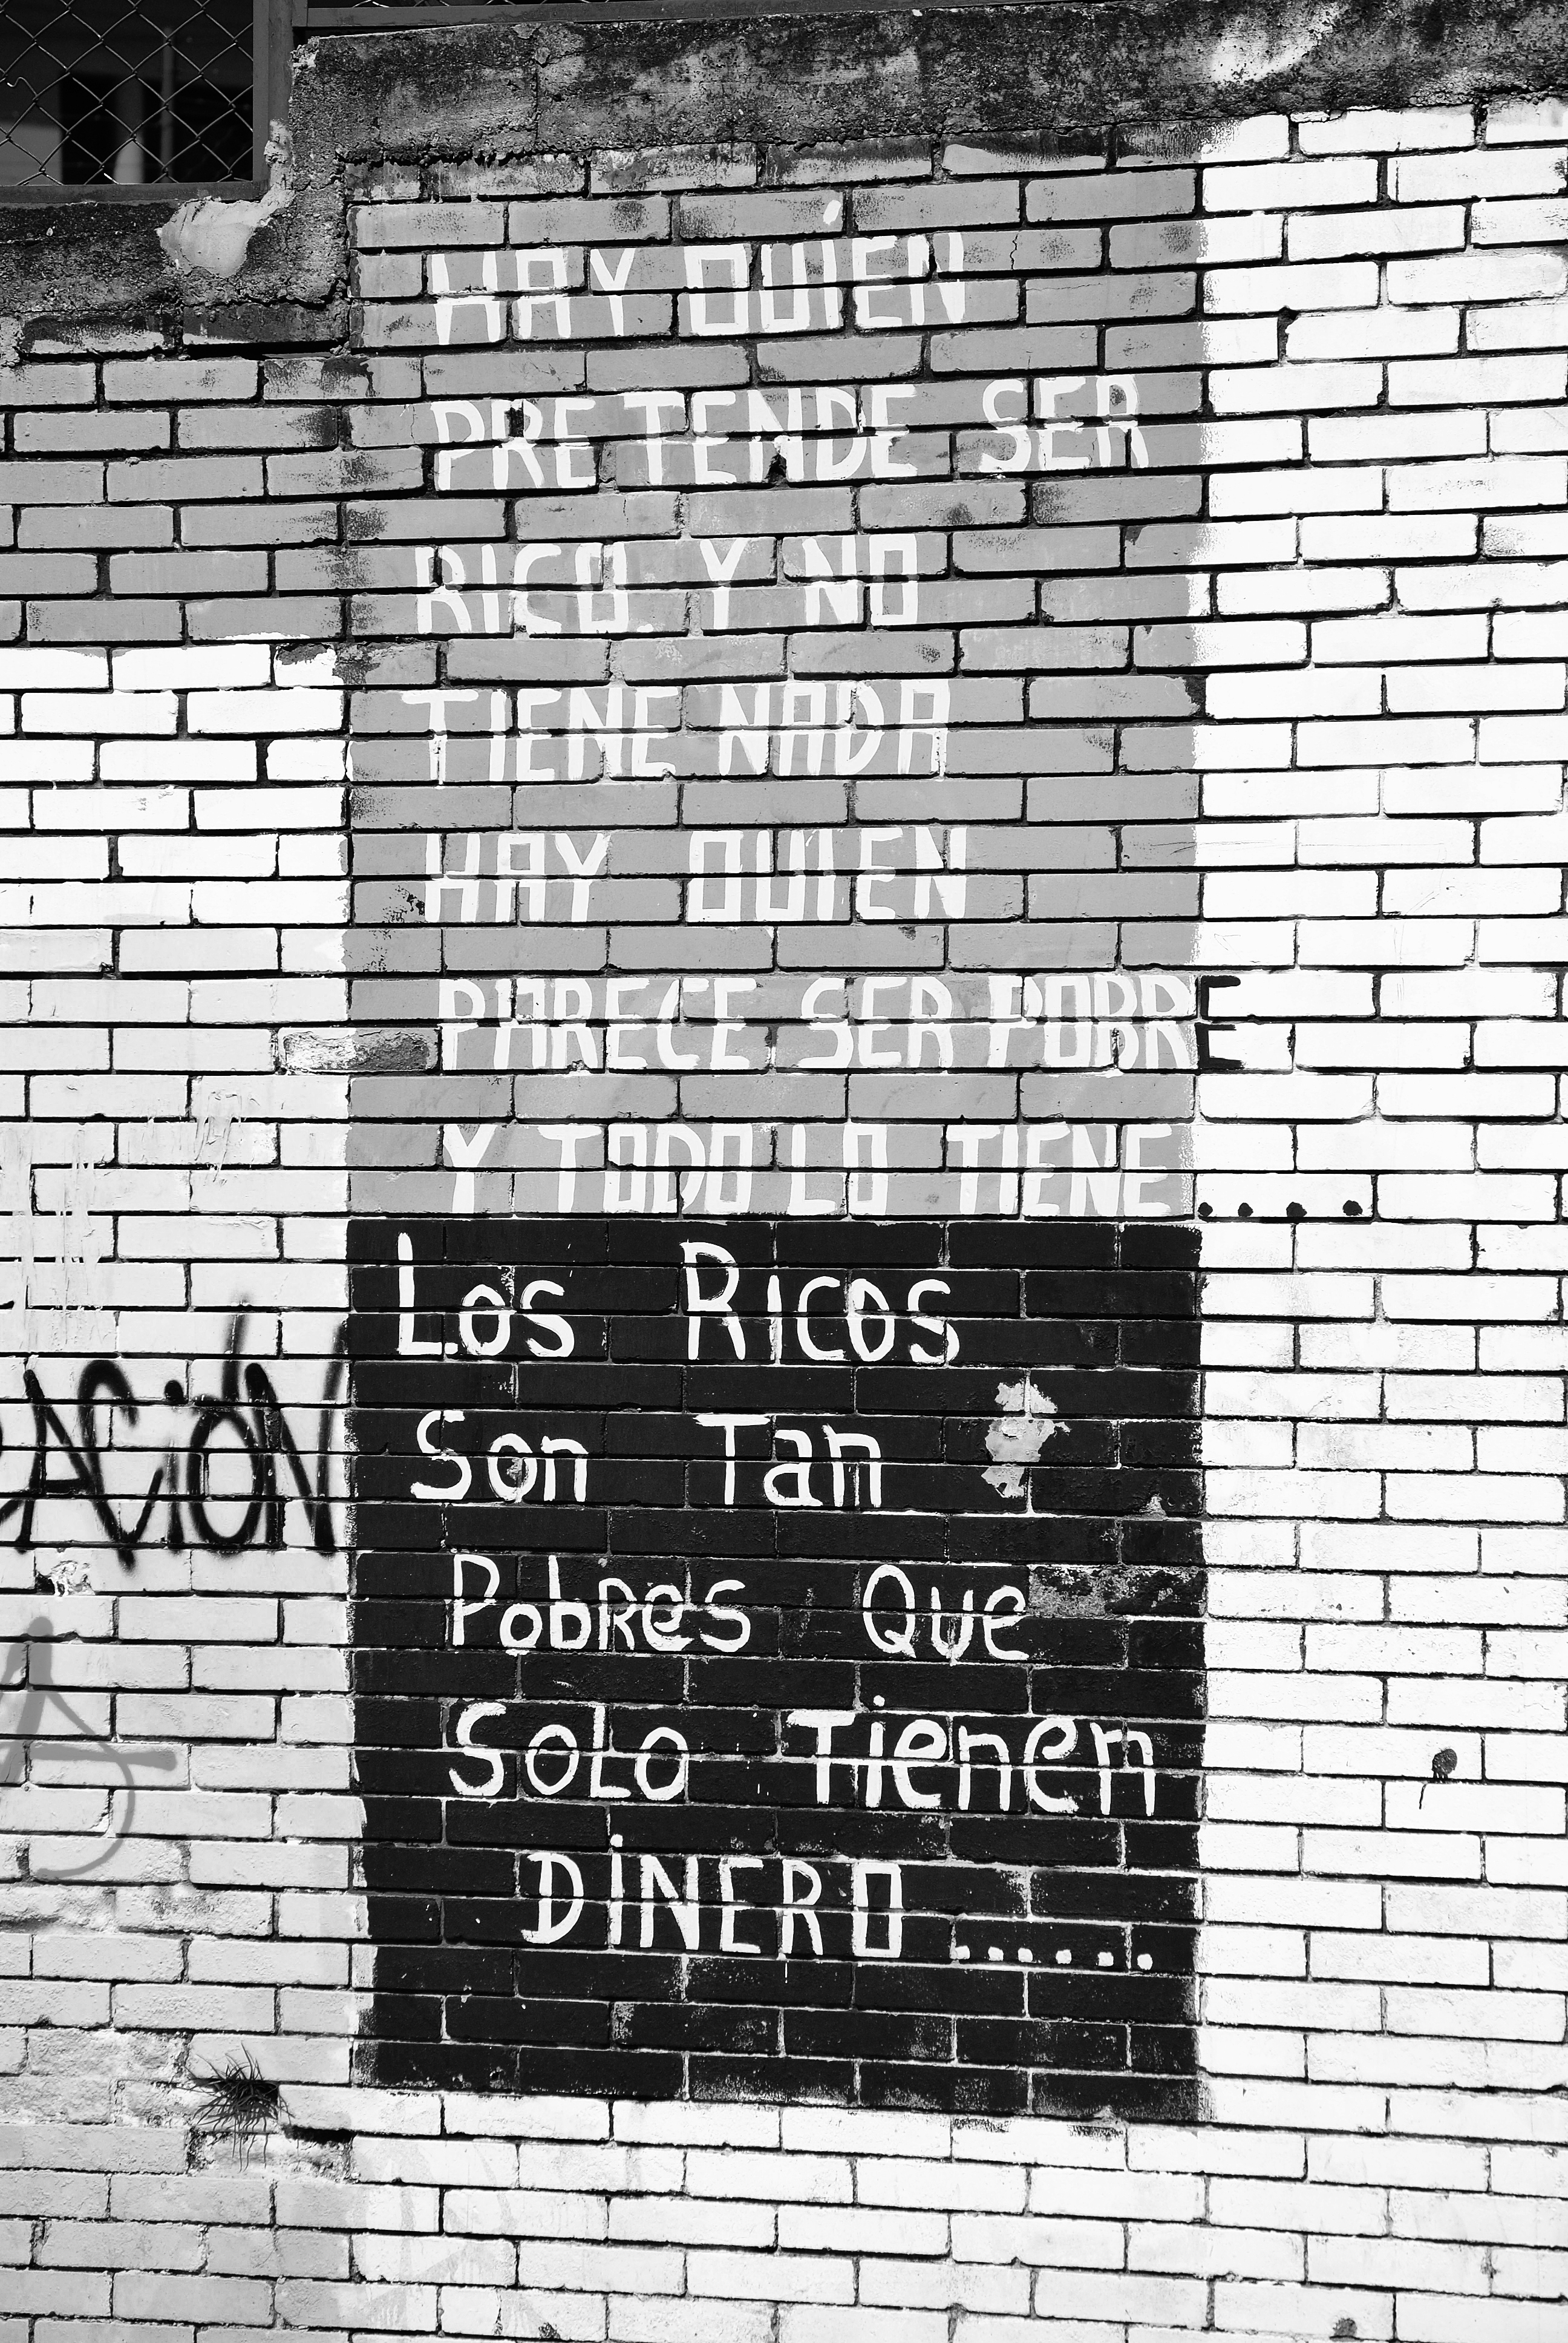 HAY QUiEN
PRETENDE SER
RICO. Y NO
TIENE NADA
HAY QUIEN
PARECE SER POBRE
Y TODO LO TIENE....
Los Ricos
Son Tan
PobRes Que
SoLo Tienen
DiNERO......
ACiÓN